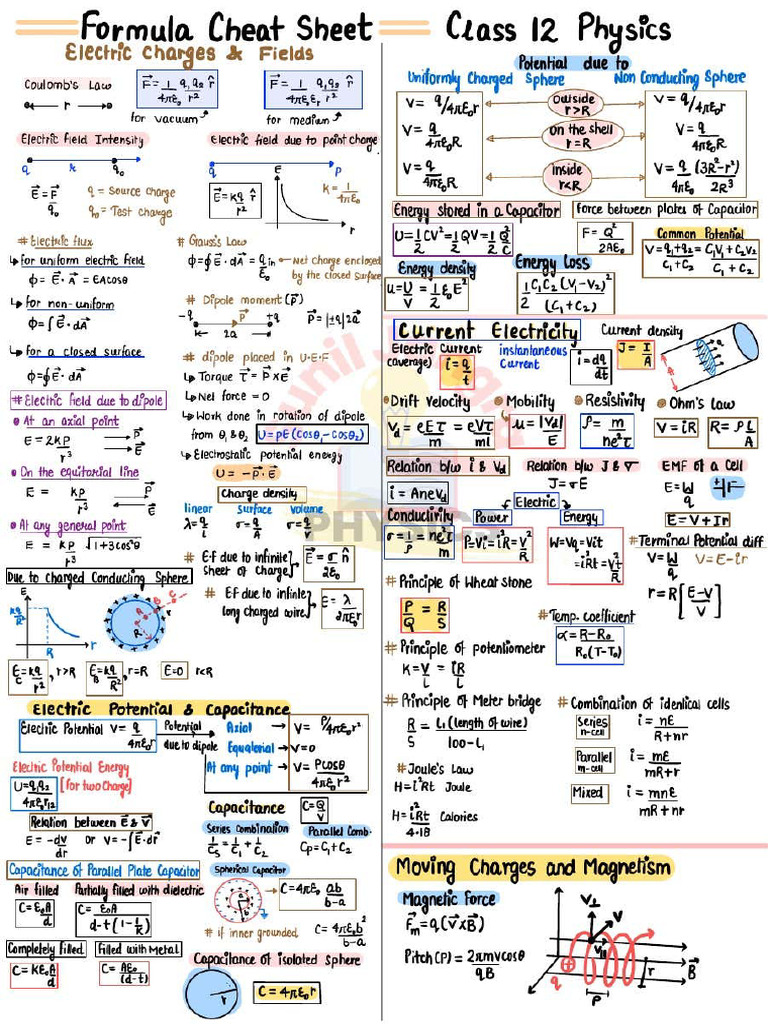 Formula Cheat Sheet Class 12 Physics
Electric Charges & Fields
Coulomb's Law
r
F⃗ = 1/4πε₀ q₁q₂/r² r̂
for vacuum
F⃗ = 1/4πε₀εr q₁q₂/r² r̂
for medium
Electric field Intensity
q r q₀
E⃗ = F⃗/q₀
q = Source charge
q₀ = Test charge
Electric field due to point charge
q P
E⃗ = kq/r² r̂
E
r
K = 1/4πε₀
# Electric flux
↳ for uniform electric field
ϕ = E⃗ · A⃗ = EA cosθ
↳ for non-uniform
ϕ = ∫E⃗ · dA⃗
↳ for a closed surface
ϕ = ∮E⃗ · dA⃗
# Gauss's Law
ϕ = ∮E⃗ · dA⃗ = qin/ε₀ Net charge enclosed by the closed Surface
# Dipole moment (P⃗)
-q P⃗ +q
2a
P⃗ = |±q|2a⃗
# dipole placed in U·E·F
↳ Torque τ⃗ = P⃗ × E⃗
↳ Net force = 0
↳ Work done in rotation of dipole
from θ₁ & θ₂ U = PE(cosθ₁ - cosθ₂)
↳ Electrostatic potential energy
U = -P⃗ · E⃗
# Electric field due to dipole
At an axial point
E = 2KP/r³ P⃗ E⃗
On the equitorial line
E = KP/r³ P⃗ E⃗
At any general point
E = KP/r³ √1+3cos²θ
Charge density
linear surface volume
λ = q/L σ = q/A σ = q/V
# E·F due to infinite sheet of charge E⃗ = σ/2ε₀ n̂
# EF due to infinite long charged wire E = λ/2πε₀r
Due to charged Conducting Sphere
E
kq/R²
R r
R A B C
E_C = kq/r², r>R E_B = kq/R², r=R E=0 r<R
Electric Potential & Capacitance
Electric Potential V = q/4πε₀r
Potential due to dipole
Axial V = P/4πε₀r²
Equatorial V=0
At any point V = Pcosθ/4πε₀r²
Electric Potential Energy
U = q₁q₂/4πε₀r₁₂ [for two Charge]
Relation between E⃗ & V⃗
E = -dV/dr or V = -∫E⃗·dr⃗
Capacitance C = Q/V
Series Combination
1/Cs = 1/C₁ + 1/C₂
Parallel Comb.
Cp = C₁+C₂
Capacitance of Parallel Plate Capacitor
Air filled
C = ε₀A/d
Partially filled with dielectric
C = ε₀A/d-t(1-1/K)
Completely filled
C = Kε₀A/d
Filled with Metal
C = Aε₀/(d-t)
Spherical Capacitor
a b
C = 4πε₀ ab/b-a
# if inner grounded C = 4πε₀b²/b-a
Capacitance of isolated sphere
r
C = 4πε₀r
Potential due to
Uniformly Charged Sphere Non Conducting Sphere
V = q/4πε₀r Outside r>R V = q/4πε₀r
V = q/4πε₀R On the shell r=R V = q/4πε₀R
V = q/4πε₀R Inside r<R V = q/4πε₀ (3R²-r²)/2R³
Energy stored in a Capacitor
U = 1/2 CV² = 1/2 QV = 1/2 Q²/C
Force between plates of Capacitor
F = Q²/2Aε₀
Common Potential
V = q₁+q₂/C₁+C₂ = C₁V₁+C₂V₂/C₁+C₂
Energy density
u = U/V = 1/2 ε₀E²
Energy Loss
1/2 C₁C₂(V₁-V₂)²/(C₁+C₂)
Current Electricity
Electric Current (average) i = q/t
instantaneous Current i = dq/dt
Current density J = I/A
A
Drift Velocity
Vd = eEτ/m = eVτ/ml
Mobility
μ = |Vd|/E
Resistivity
ρ = m/ne²τ
Ohm's Law
V = iR R = ρL/A
Relation b/w i & Vd
i = AneVd
Relation b/w J & σ
J = σE
EMF of a Cell
E = W/q
E = V + Ir
Conductivity
σ = 1/ρ = ne²τ/m
Electric
Power
P=Vi = i²R = V²/R
Energy
W=Vq = Vit
= i²Rt = V²t/R
# Terminal Potential diff
V = W/q V = E-ir
r = R[E-V/V]
# Principle of Wheat stone
P/Q = R/S
# Temp. coefficient
α = R-R₀/R₀(T-T₀)
# Principle of potentiometer
K = V/L = iR/L
# Principle of Meter bridge
R/S = L₁(length of wire)/100-L₁
# Combination of identical cells
Series n-cell i = nE/R+nr
Parallel m-cell i = mE/mR+r
Mixed i = mnE/mR+nr
# Joule's Law
H = i²Rt Joule
H = i²Rt/4·18 Calories
Moving Charges and Magnetism
Magnetic Force
F⃗m = q(V⃗×B⃗)
Pitch(P) = 2πmvcosθ/qB
V⊥ V
V||
q P r B⃗
Sunil Jangra
PHYSICS